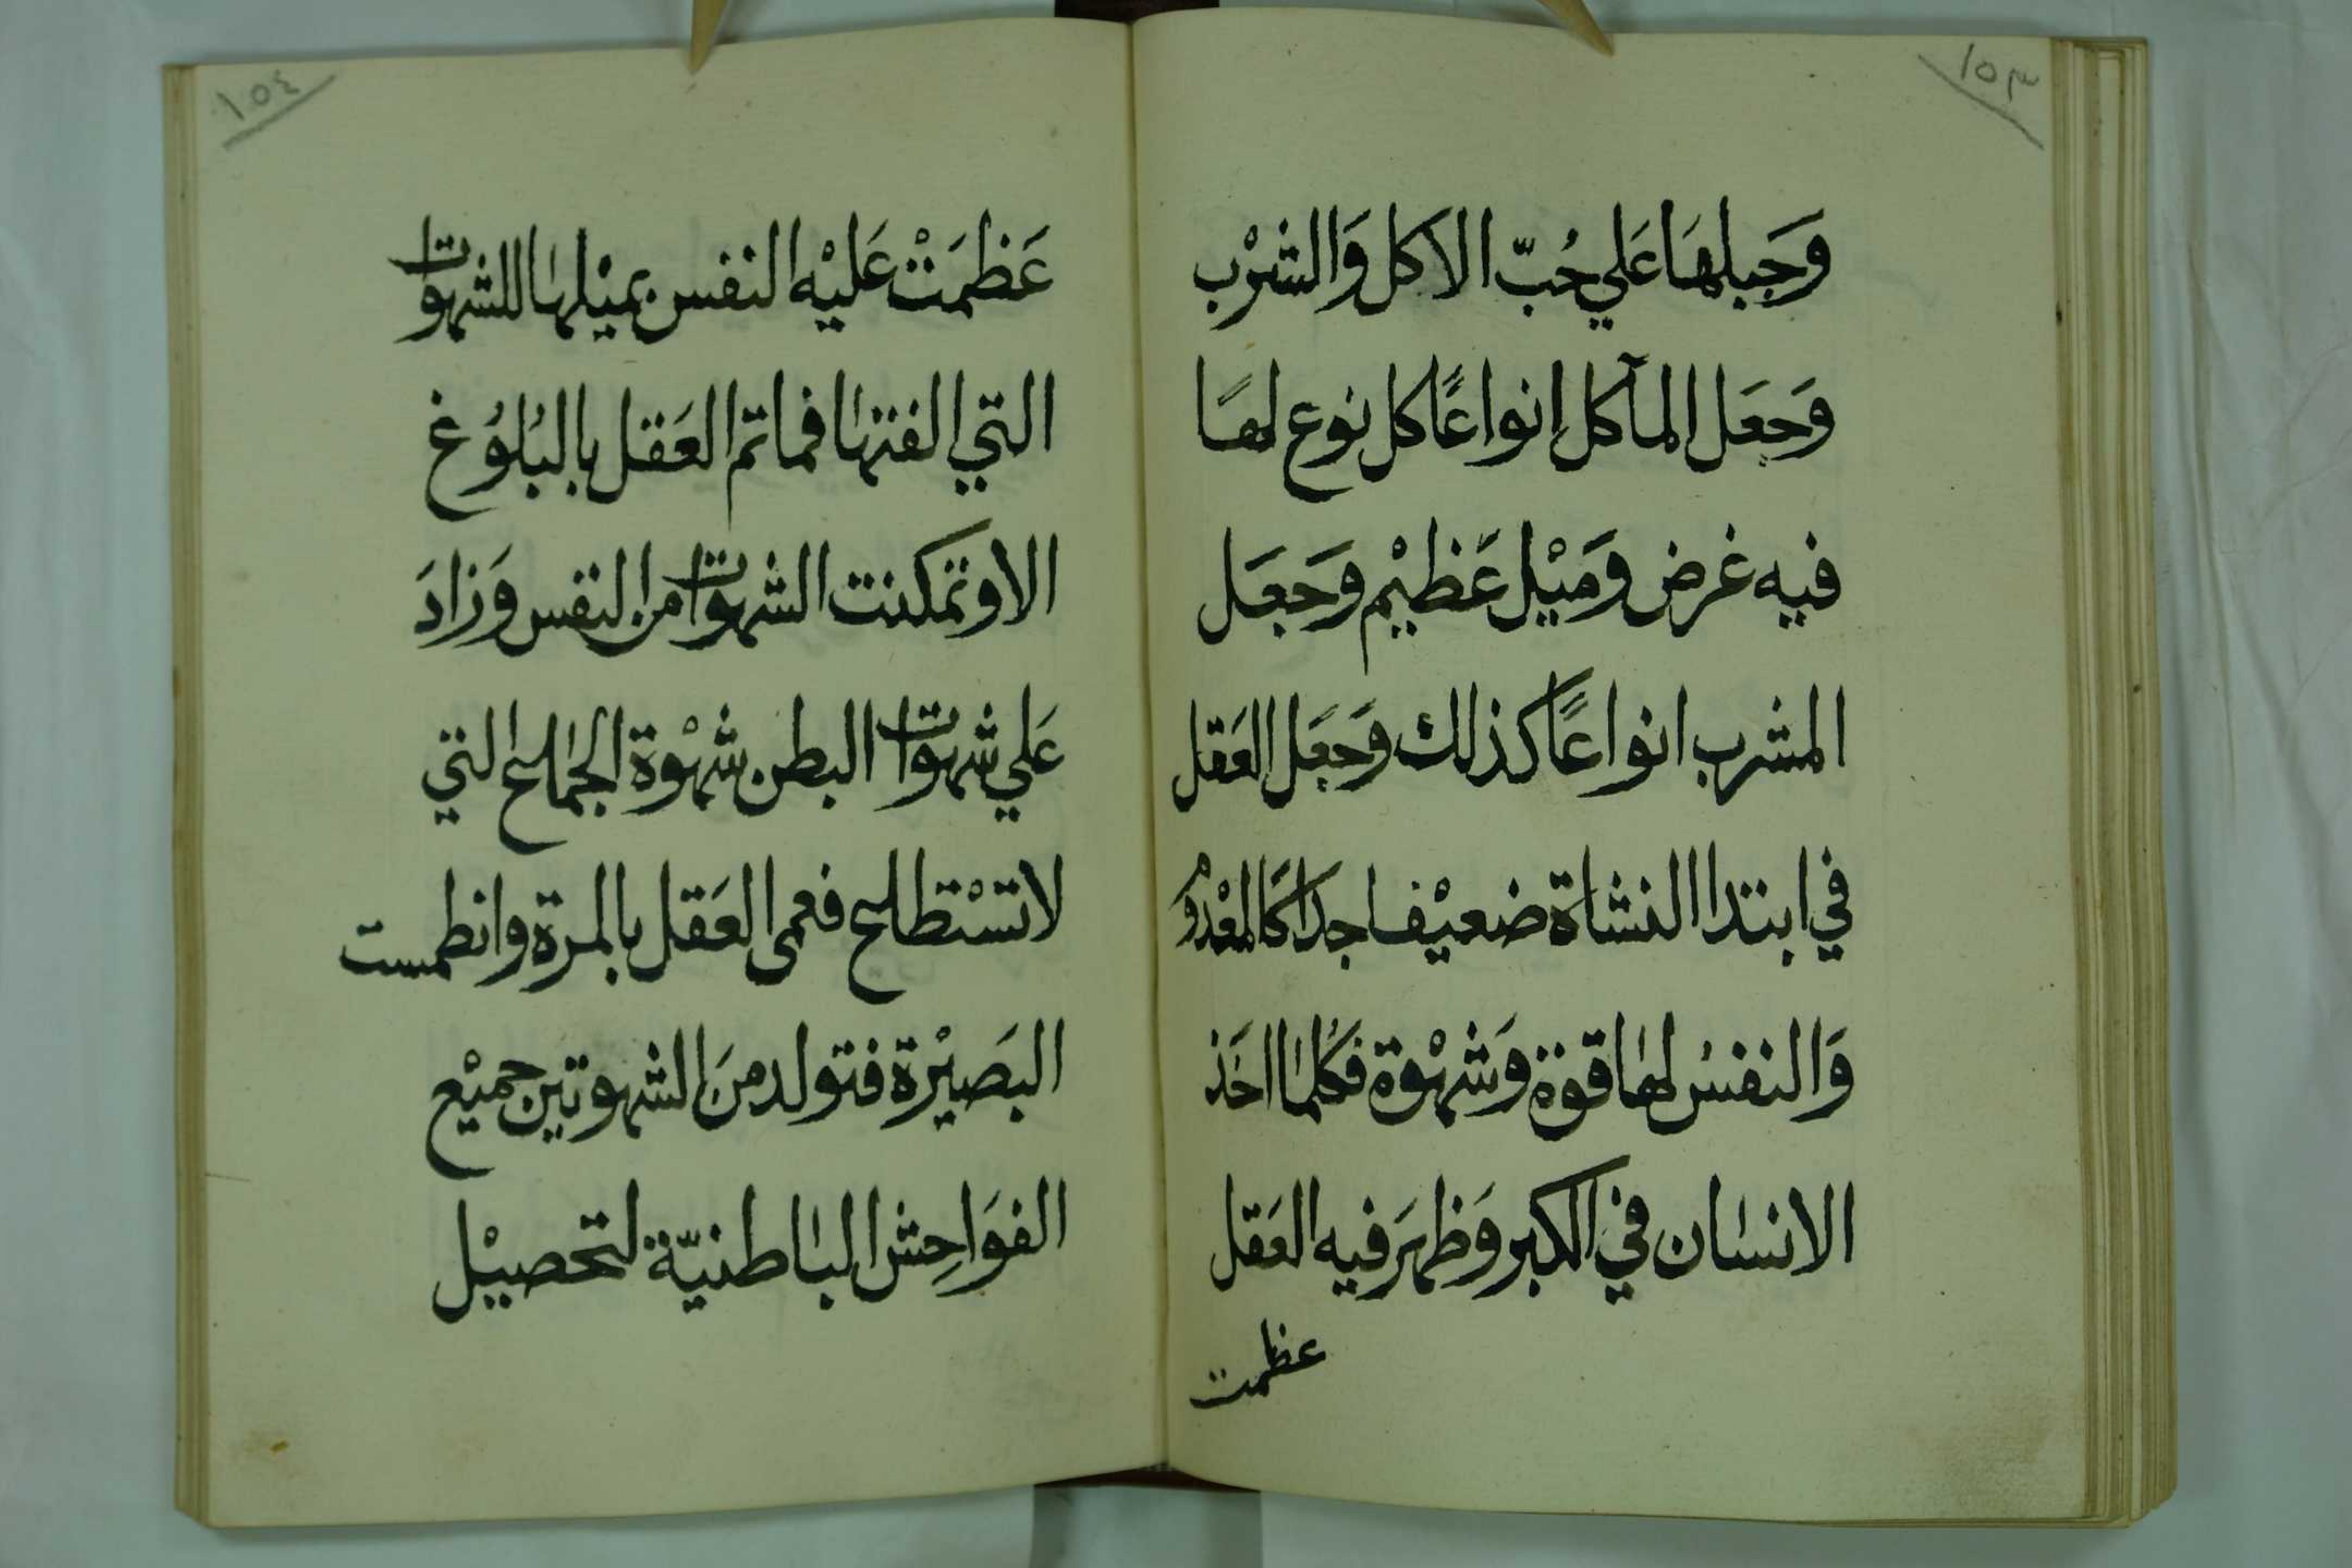 ١٥٣
وَجَبلهَا عَلي حُبّ الاكل وَالشرْب
وَجعَل المآكل انواعًا كل نوع لهَا
فيه غرض ومَيْل عَظيْم وجَعَل
المشرب انواعًا كذلك وَجعَل العَقل
في ابتدا النشاة ضعيْفا جدا كالمعْدوم
وَالنفسُ لها قوة وَشهْوة فكلما اخَذ
الانسان في الكبر وَظهَر فيه العَقل
عظمت
١٥٤
عَظمَتْ عَليْه النفس بميْلها للشهوات
التي الفتها فما تم العَقل بالبُلوُغ
الا وتمكنت الشهوات من النفس وَزادَ
عَلي شهوات البطن شهْوة الجماع التي
لا تسْتطاع فعمى العَقل بالمرة وانطمست
البَصيْرة فتولد منَ الشهوتين جميْع
الفوَاحِش الباطنيّة لتحصيْل